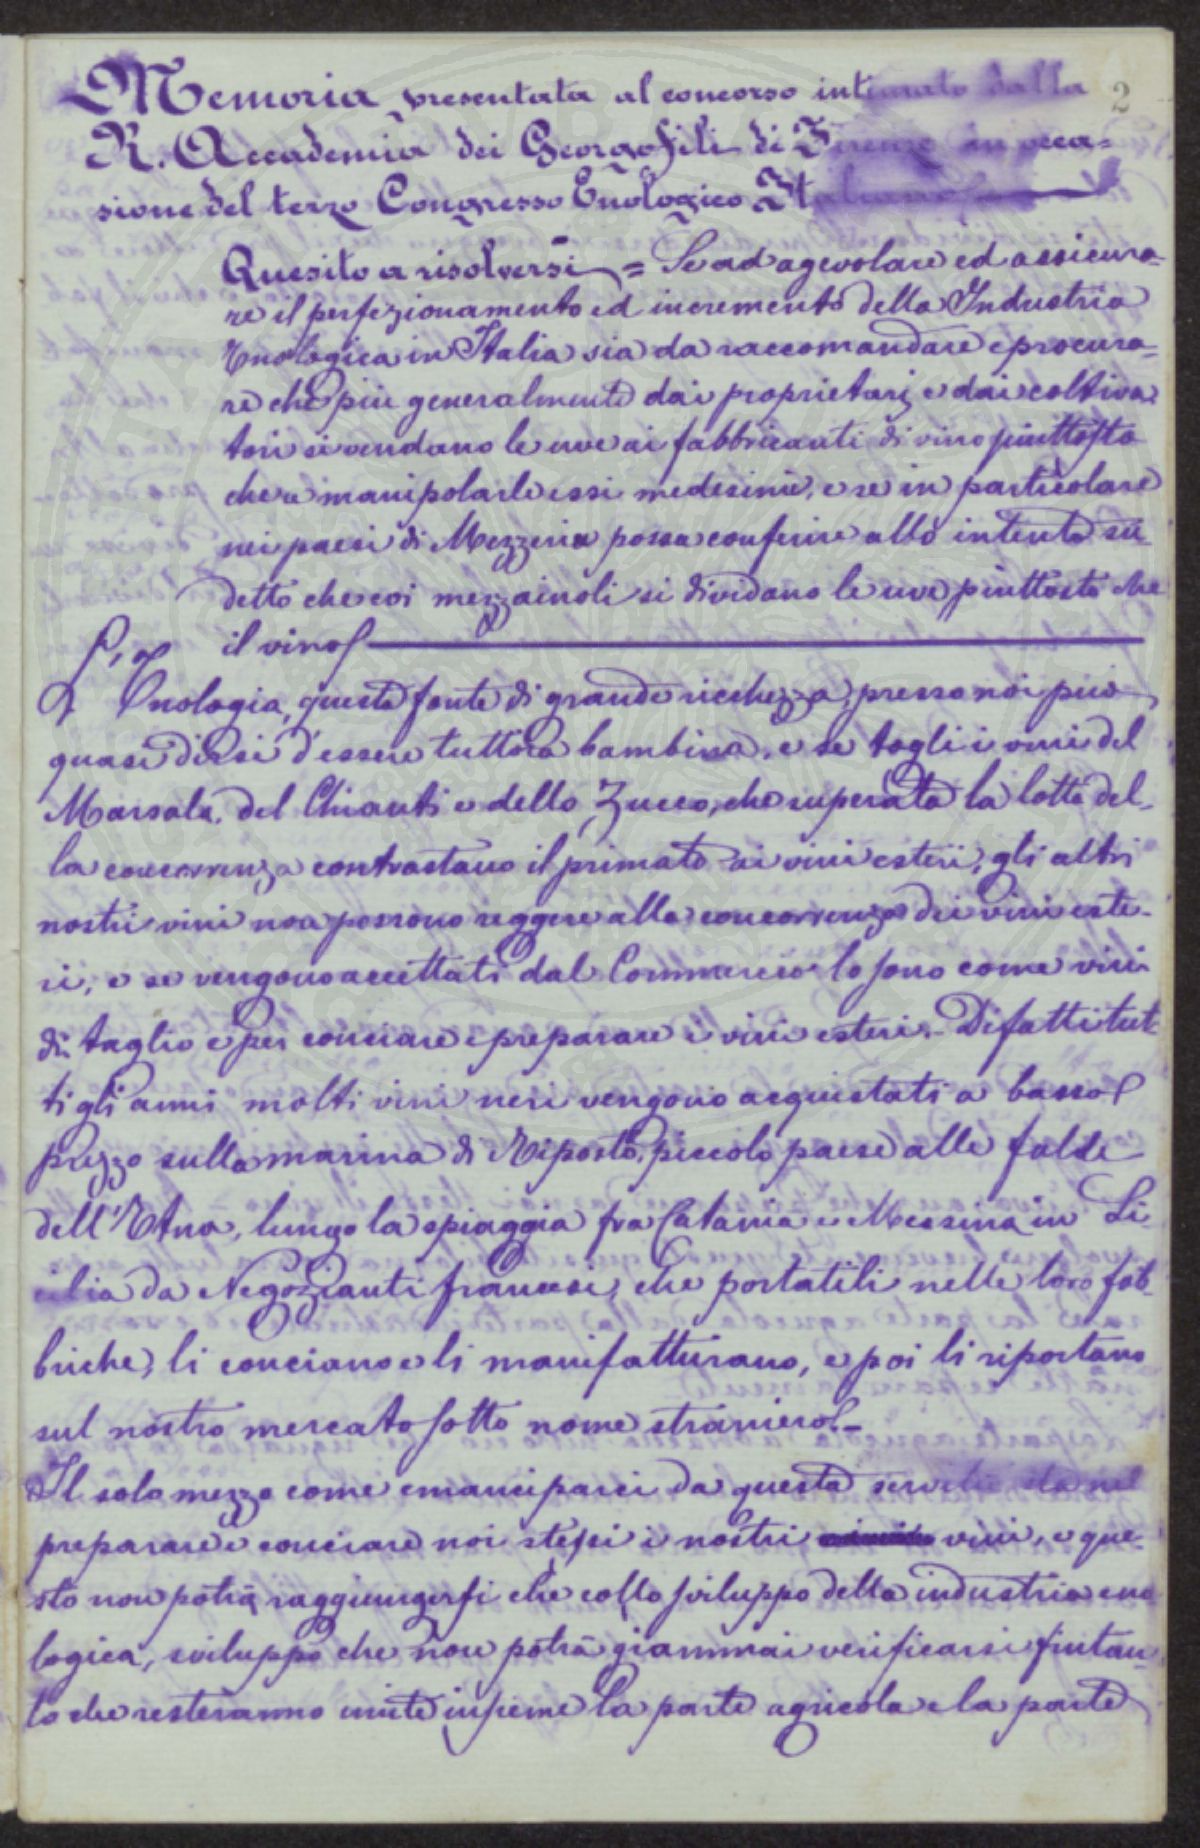 2
Memoria presentata al concorso intimato dalla
R. Accademia dei Georgofili di Firenze in occa=
sione del terzo Congresso Enologico Italiano
Quesito a risolversi = Se ad agevolare ed assicura=
re il perfezionamento ed incremento della Industria
Enologica in Italia sia da raccomandare e procura=
re che più generalmente dai proprietarj e dai coltiva
tori si vendano le uve ai fabbricanti di vino piuttosto
che a manipolarle essi medesimi, e se in particolare
nei paesi di Mezzeria possa conferire allo intento su
detto che coi mezzaiuoli si dividano le uve piuttosto che
il vino
L'Enologia, questa fonte di grande ricchezza, presso noi può
quasi dirsi d'essere tuttora bambina, e se togli i vini del
Marsala, del Chianti e dello Zucco, che superata la lotta del-
la concorrenza contrastano il primato ai vini esteri, gli altri
nostri vini non possono reggere alla concorrenza dei vini este-
ri, e se vengono accettati dal Commercio lo sono come vini
di taglio e per conciare e preparare i vini esteri. Difatti tut-
ti gli anni molti vini neri vengono acquistati a basso
prezzo sulla marina di Riposto, piccolo paese alle falde
dell'Etna, lungo la spiaggia fra Catania e Messina in Si
cilia da Negozianti francesi, che portatili nelle loro fab-
briche, li conciano e li manifatturano, e poi li riportano
sul nostro mercato sotto nome straniero.-
Il solo mezzo come emanciparci da questa servitù sta nel
preparare e conciare noi stessi i nostri vini, e que-
sto non potrà raggiungersi che collo sviluppo della industria eno
logica, sviluppo che non potrà giammai verificarsi fintan
to che resteranno unite insieme la parte agricola e la parte